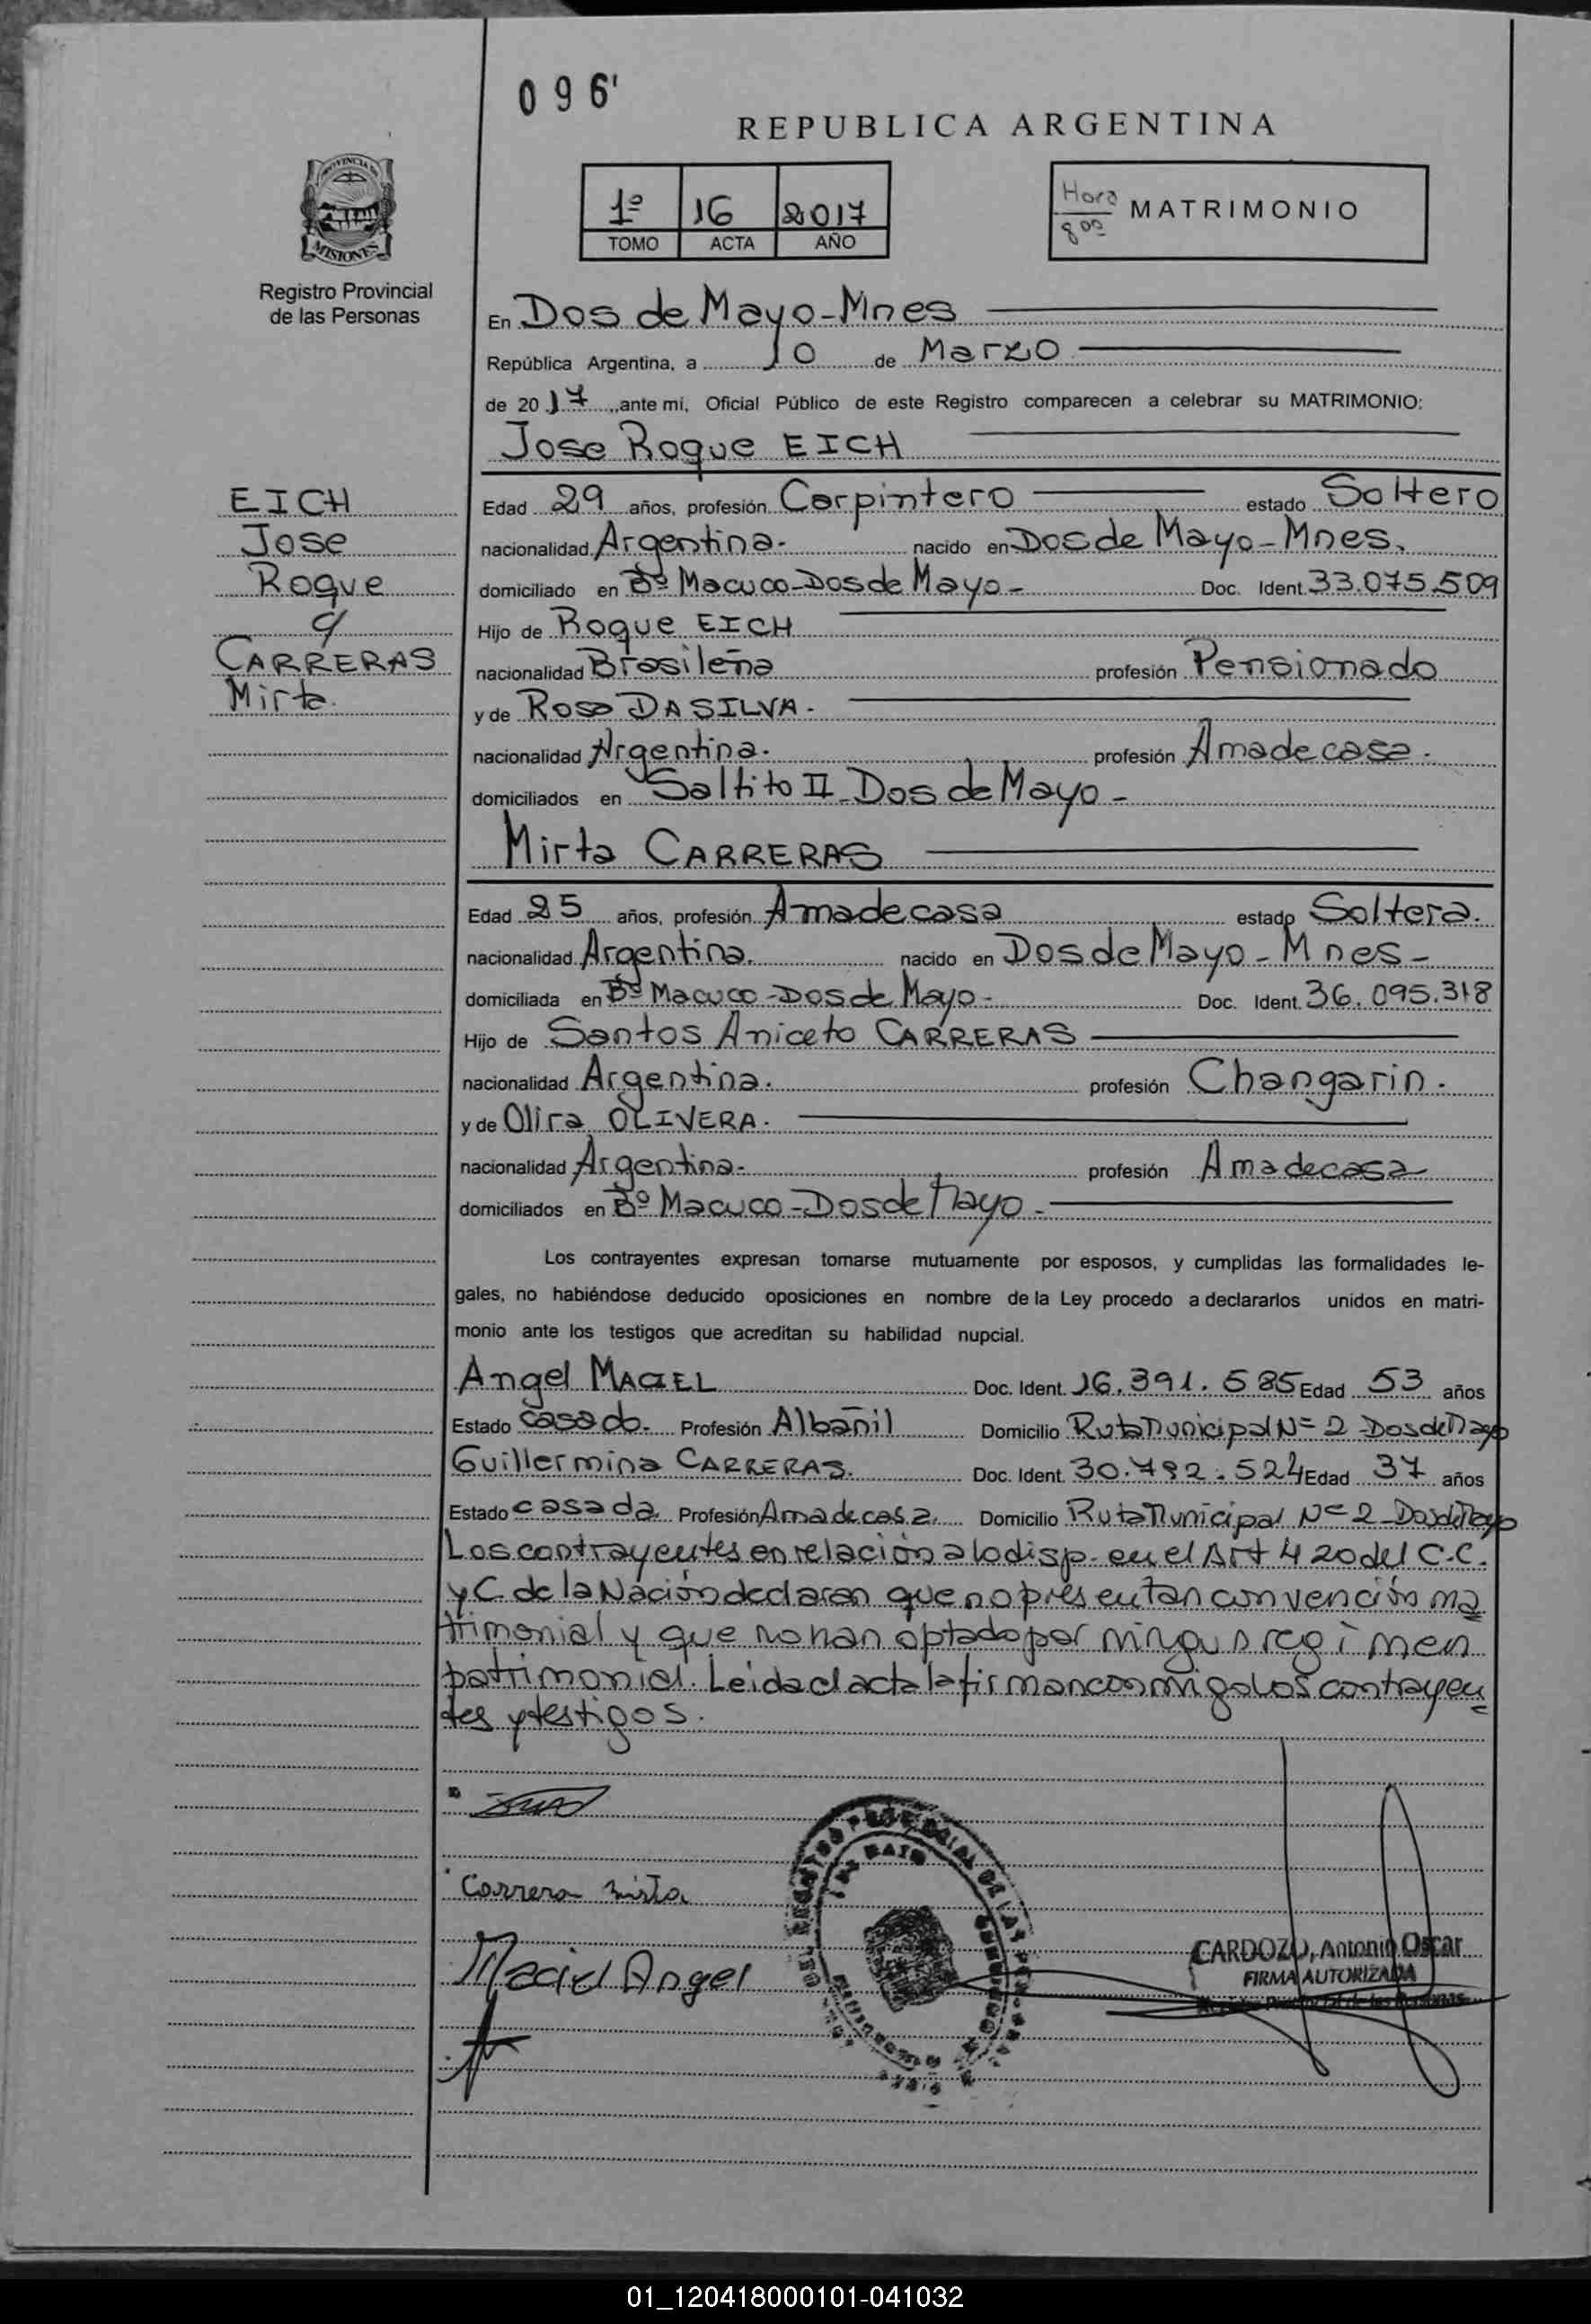 096'
REPUBLICA ARGENTINA
PROVINCIA DE
MISIONES
Registro Provincial
de las Personas
1º 16 2017
TOMO ACTA AÑO
Hora
8 00
MATRIMONIO
En Dos de Mayo - Mnes
República Argentina, a 10 de Marzo
de 2017, ante mi, Oficial Público de este Registro comparecen a celebrar su MATRIMONIO:
Jose Roque EICH
EICH
Jose
Roque
c/
CARRERAS
Mirta.
Edad 29 años, profesión Carpintero estado Soltero
nacionalidad Argentina. nacido en Dos de Mayo - Mnes.
domiciliado en Bº Macuco - Dos de Mayo - Doc. Ident. 33.075.509
Hijo de Roque EICH
nacionalidad Brasileña profesión Pensionado
y de Rosa DA SILVA.
nacionalidad Argentina. profesión Ama de casa.
domiciliados en Saltito II - Dos de Mayo -
Mirta CARRERAS
Edad 25 años, profesión Ama de casa estado Soltera.
nacionalidad Argentina. nacido en Dos de Mayo - Mnes -
domiciliada en Bº Macuco - Dos de Mayo - Doc. Ident. 36.095.318
Hijo de Santos Aniceto CARRERAS
nacionalidad Argentina. profesión Changarin.
y de Olira OLIVERA.
nacionalidad Argentina. profesión Ama de casa
domiciliados en Bº Macuco - Dos de Mayo -
Los contrayentes expresan tomarse mutuamente por esposos, y cumplidas las formalidades le-
gales, no habiéndose deducido oposiciones en nombre de la Ley procedo a declararlos unidos en matri-
monio ante los testigos que acreditan su habilidad nupcial.
Angel MACIEL Doc. Ident. 16.391.585 Edad 53 años
Estado casado. Profesión Albañil Domicilio Ruta Municipal Nº 2 - Dos de Mayo
Guillermina CARRERAS. Doc. Ident. 30.792.524 Edad 37 años
Estado casada. Profesión Ama de casa. Domicilio Ruta Municipal Nº 2 - Dos de Mayo
Los contrayentes en relación a lo disp. en el Art 420 del C.C.
y C. de la Nación declaran que no presentan convención ma
trimonial y que no han optado por ningun regimen
patrimonial. Leida el acta la firman conmigo los contrayen
tes y testigos.
Carrera Mirta
Maciel Angel
CARDOZO, Antonio Oscar
FIRMA AUTORIZADA
Registro Provincial de las Personas
01_120418000101-041032